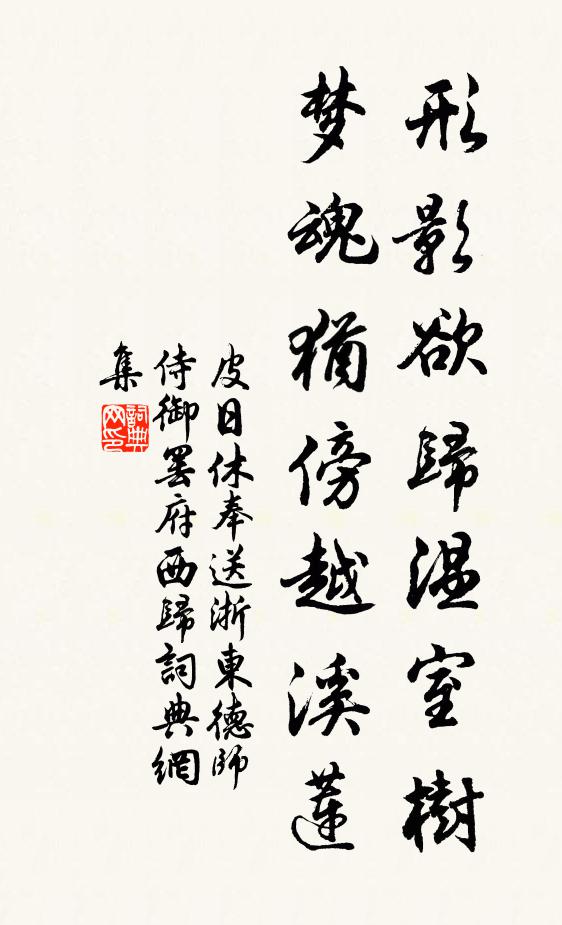 形影欲歸温室樹
梦魂猶傍越溪蓮
皮日休奉送浙東德師
侍御罢府西歸詞典網
集
詞典网印